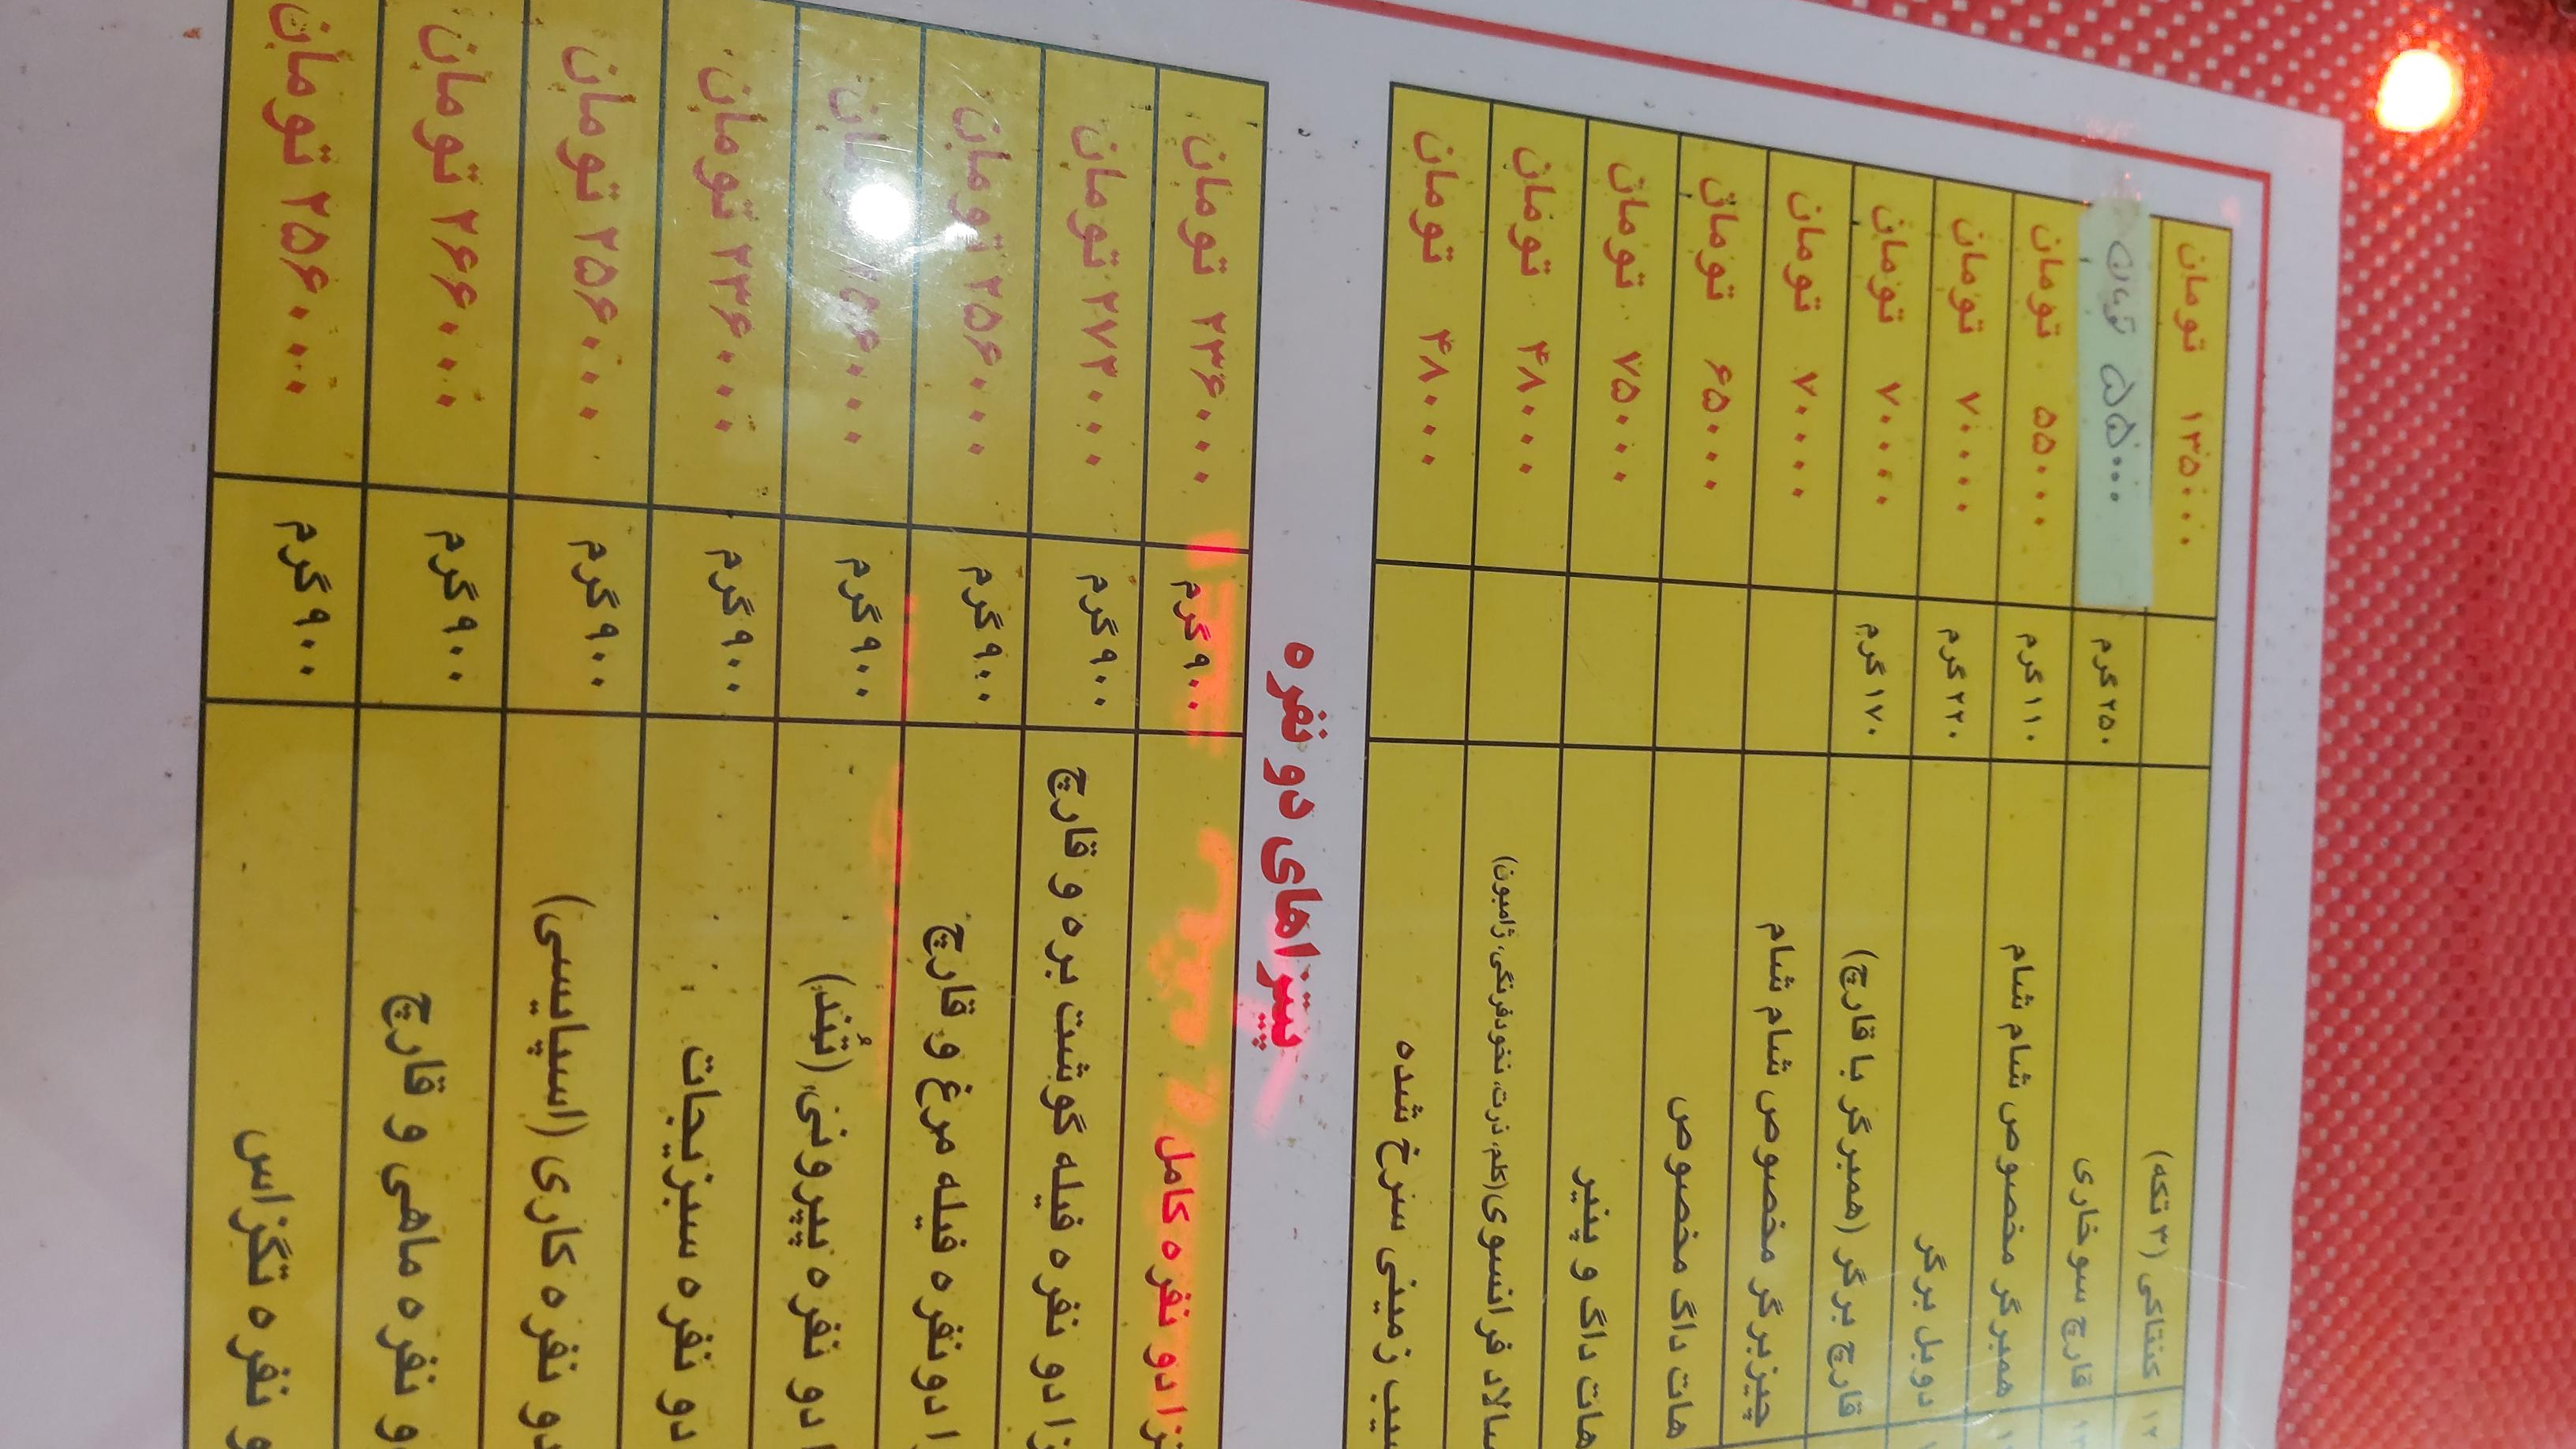 ۱۲ کنتاکی (۳ تکه) ۱۳۵۰۰۰ تومان
قارچ سوخاری ۲۵۰ گرم ۵۵۰۰۰ تومان
همبرگر مخصوص شام شام ۱۱۰ گرم ۵۵۰۰۰ تومان
دوبل برگر ۲۲۰ گرم ۷۰۰۰۰ تومان
قارچ برگر (همبرگر با قارچ) ۱۷۰ گرم ۷۰۰۰۰ تومان
چیزبرگر مخصوص شام شام ۷۰۰۰۰ تومان
هات داگ مخصوص ۶۵۰۰۰ تومان
هات داگ و پنیر ۷۵۰۰۰ تومان
سالاد فرانسوی (کلم، ذرت، نخودفرنگی، ژامبون) ۴۸۰۰۰ تومان
سیب زمینی سرخ شده ۴۸۰۰۰ تومان
پیتزاهای دو نفره
دو نفره کامل ۹۰۰ گرم ۲۳۶۰۰۰ تومان
دو نفره فیله گوشت بره و قارچ ۹۰۰ گرم ۲۷۲۰۰۰ تومان
دونفره فیله مرغ و قارچ ۹۰۰ گرم ۲۵۶۰۰۰ تومان
دو نفره پپرونی (تُند) ۹۰۰ گرم ۲۵۶۰۰۰
دو نفره سبزیجات ۹۰۰ گرم ۲۳۶۰۰۰ تومان
دو نفره کاری (اسپایسی) ۹۰۰ گرم ۲۵۶۰۰۰ تومان
نفره ماهی و قارچ ۹۰۰ گرم ۲۶۶۰۰۰ تومان
نفره تگزاس ۹۰۰ گرم ۲۵۶۰۰۰ تومان